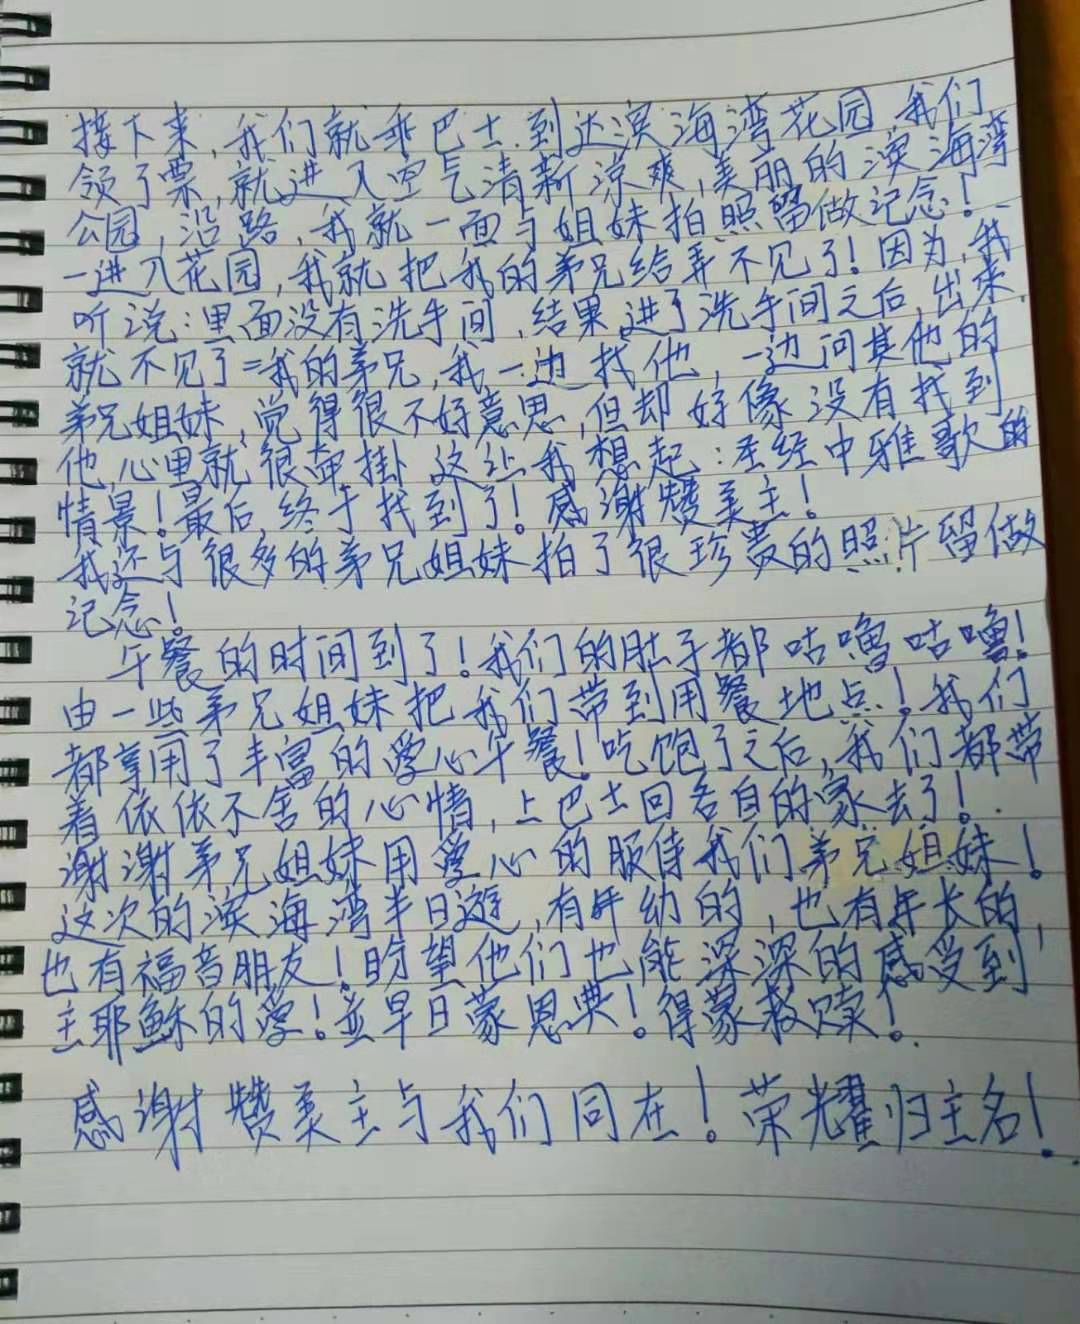 接下来,我们就乖巴士.到达滨海湾花园,我们
领了票,就进入空气清新凉爽,美丽的滨海湾
公园,沿路,我就一面与姐妹拍照留做记念!
一进入花园,我就把我的弟兄给弄不见了!因为,我
听说:里面没有洗手间,结果进了洗手间之后,出来,
就不见了=我的弟兄,我一边找他,一边问其他的
弟兄姐妹,觉得很不好意思,但却好像没有找到
他,心里就很牵掛 这让我想起:圣经中雅歌的
情景!最后,终于找到了!感谢赞美主!
我还与很多的弟兄姐妹拍了很珍贵的照片留做
记念!
午餐的时间到了!我们的肚子都咕噜咕噜!
由一些弟兄姐妹把我们带到用餐地点!我们
都享用了丰富的爱心午餐!吃饱了之后,我们都带
着依依不舍的心情,上巴士回各自的家去了!
谢谢弟兄姐妹用爱心的服侍我们弟兄姐妹!
这次的滨海湾半日遊,有年幼的,也有年长的,
也有福音朋友!盼望他们也能深深的感受到
主耶稣的爱!並早日蒙恩典!得蒙救赎!
感谢赞美主与我们同在!荣耀归主名!